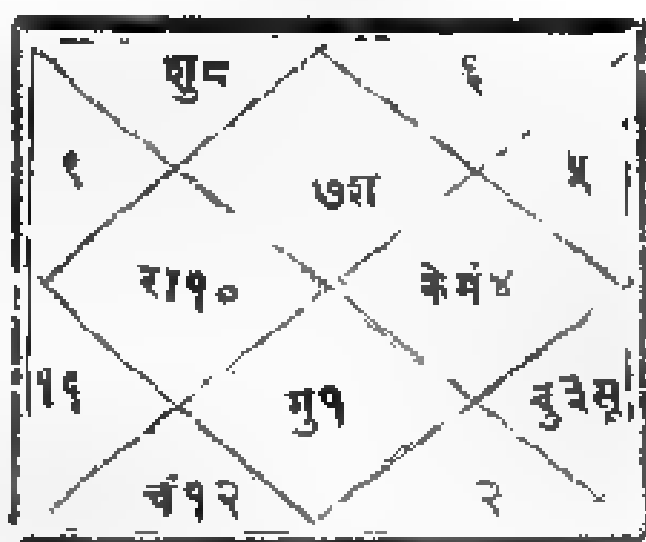 शु८ ६
९ ७श ५
रा१० के मं ४
११ गु१ बु३सू
चं१२ २